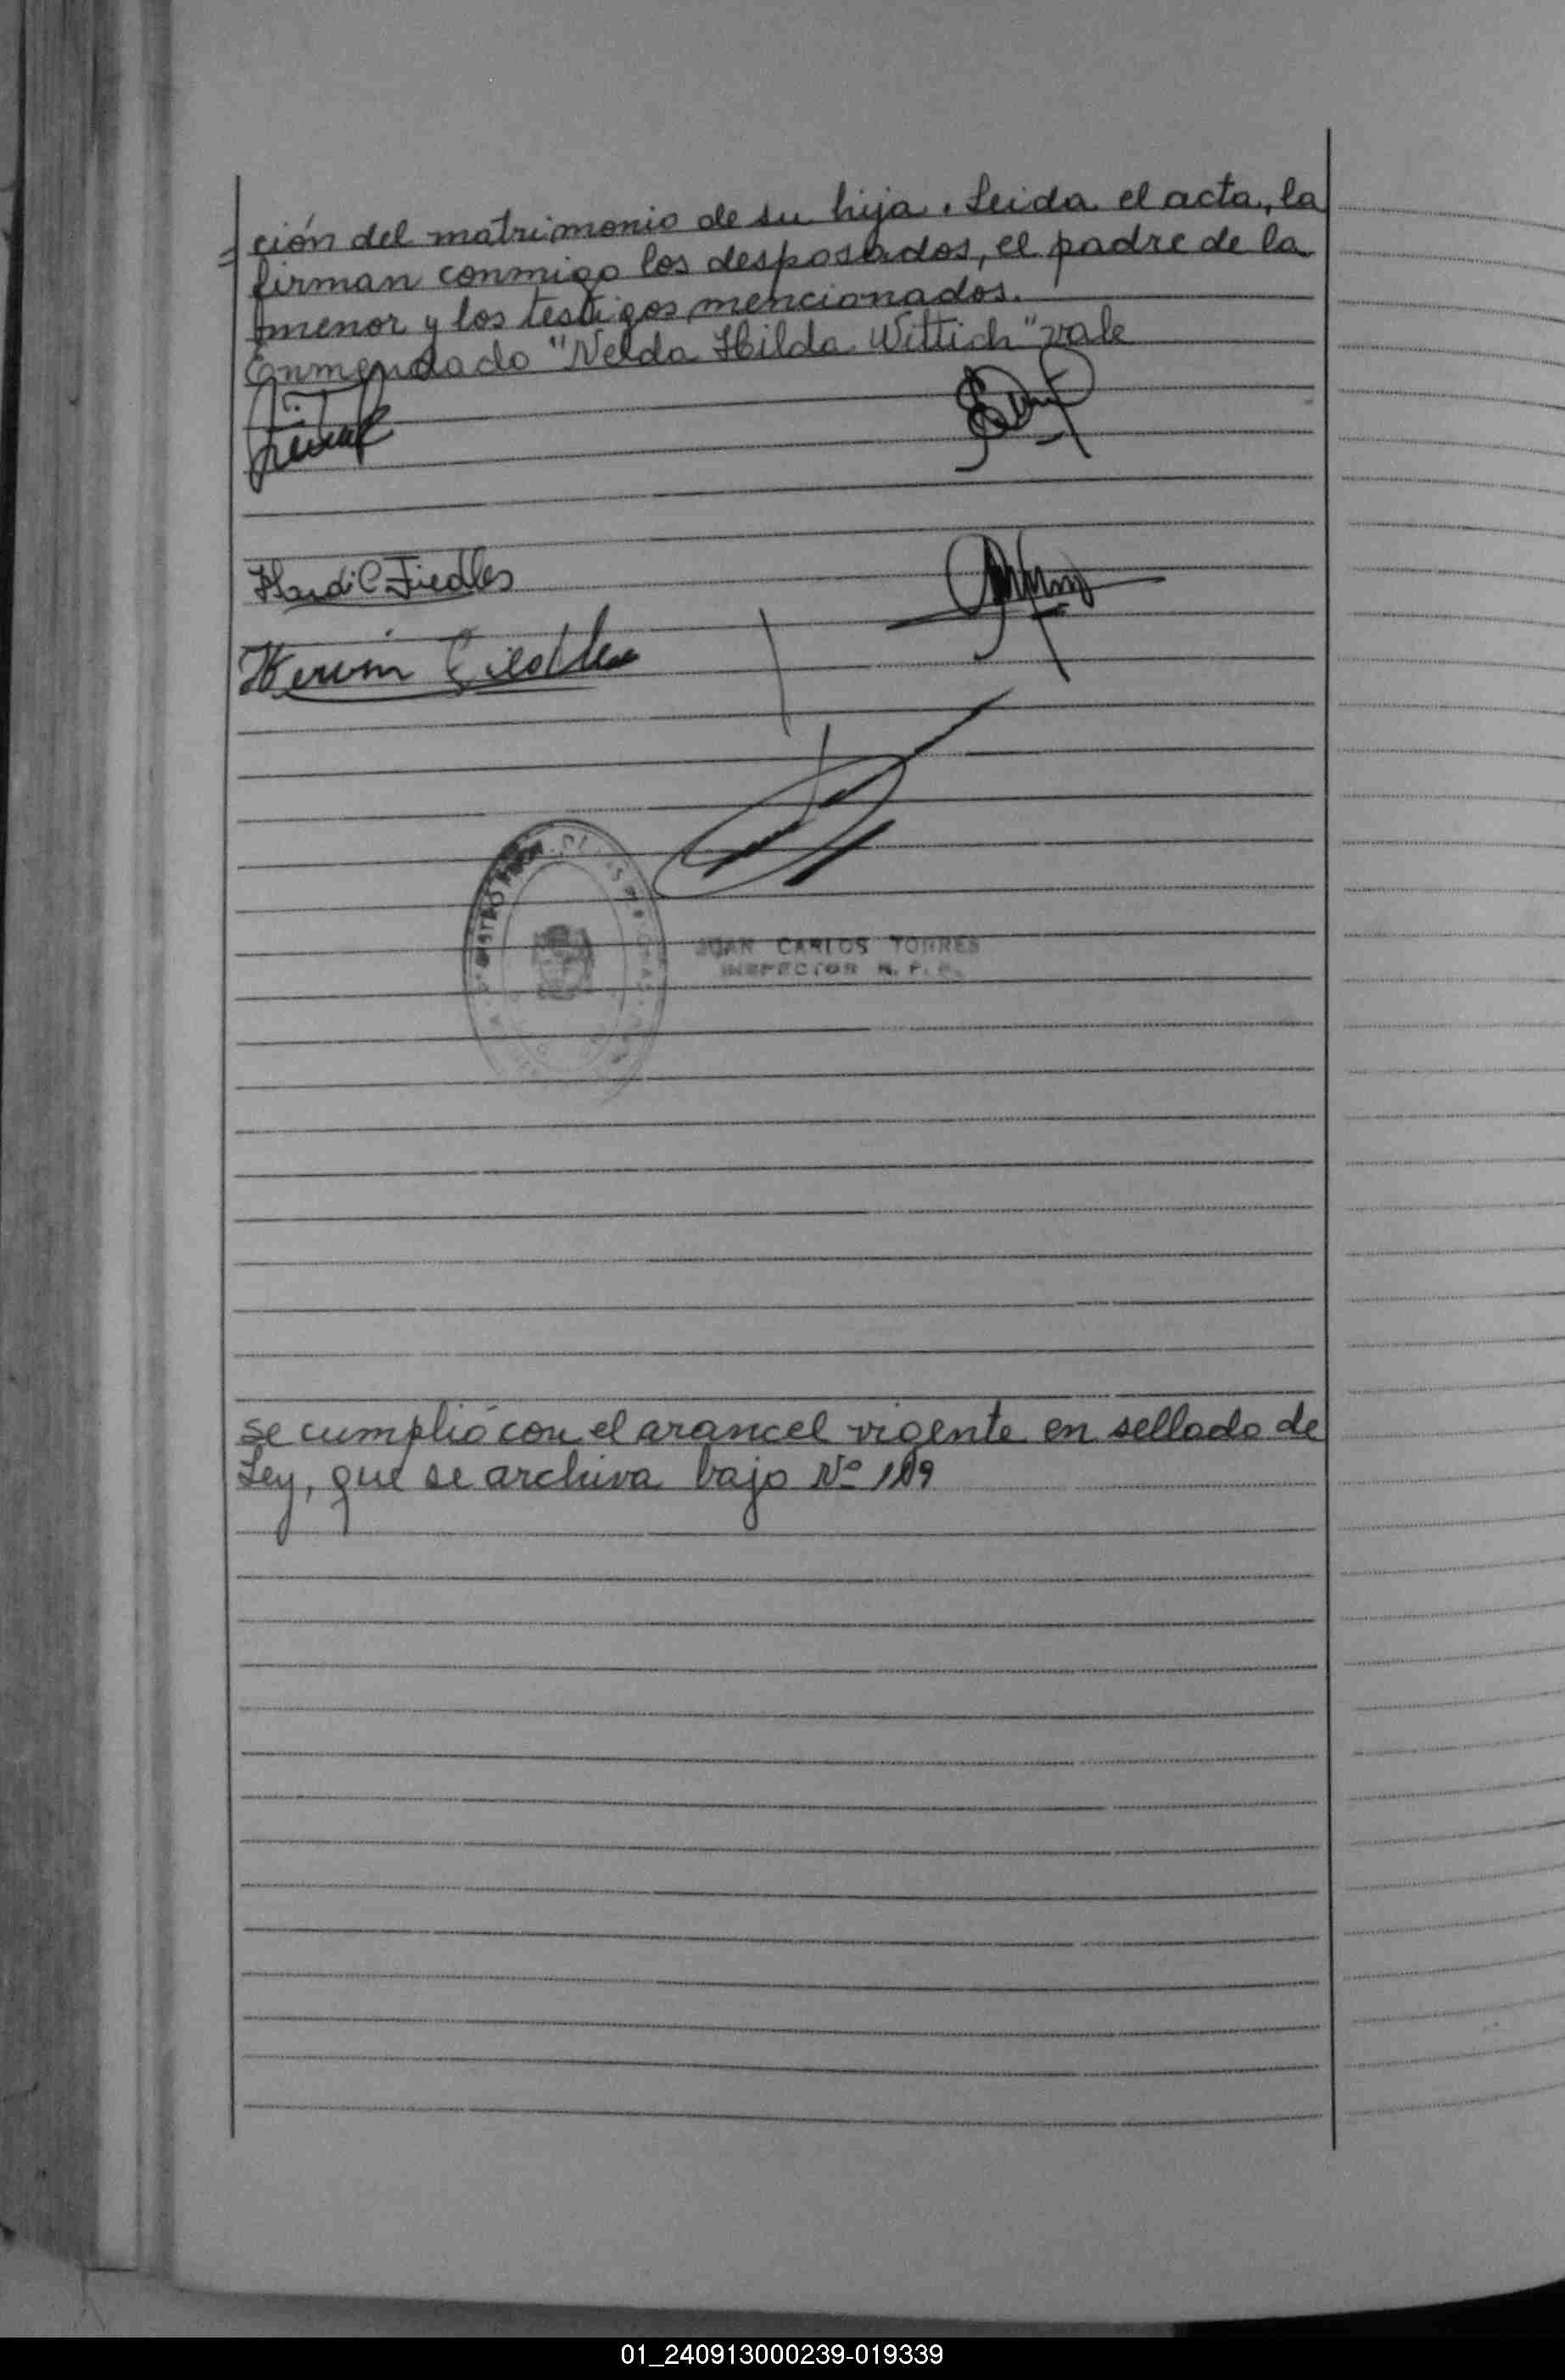 =ción del matrimonio de su hija. Leida el acta, la
firman conmigo los desposados, el padre de la
menor y los testigos mencionados.
Enmendado "Nelda Hilda Wittich" vale
Fiedler
JUAN CARLOS TORRES
INSPECTOR R. P. P.
se cumplió con el arancel vigente en sellado de
Ley, que se archiva bajo Nº
01_240913000239-019339